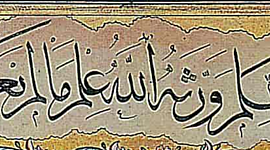 علم ورثه الله علم مالم يع